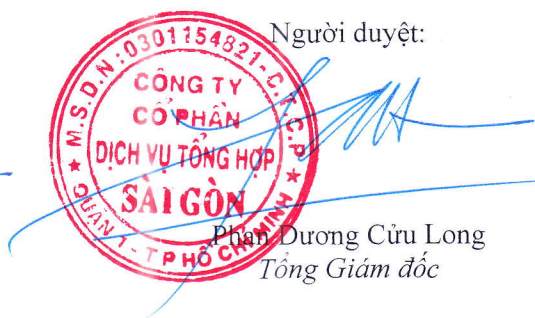 Người duyệt:
M.S.D.N:0301154821-C.T.C.P
CÔNG TY
CỔ PHẦN
DỊCH VỤ TỔNG HỢP
SÀI GÒN
QUẬN 1-TP HỒ CHÍ MINH
Phan Dương Cửu Long
Tổng Giám đốc